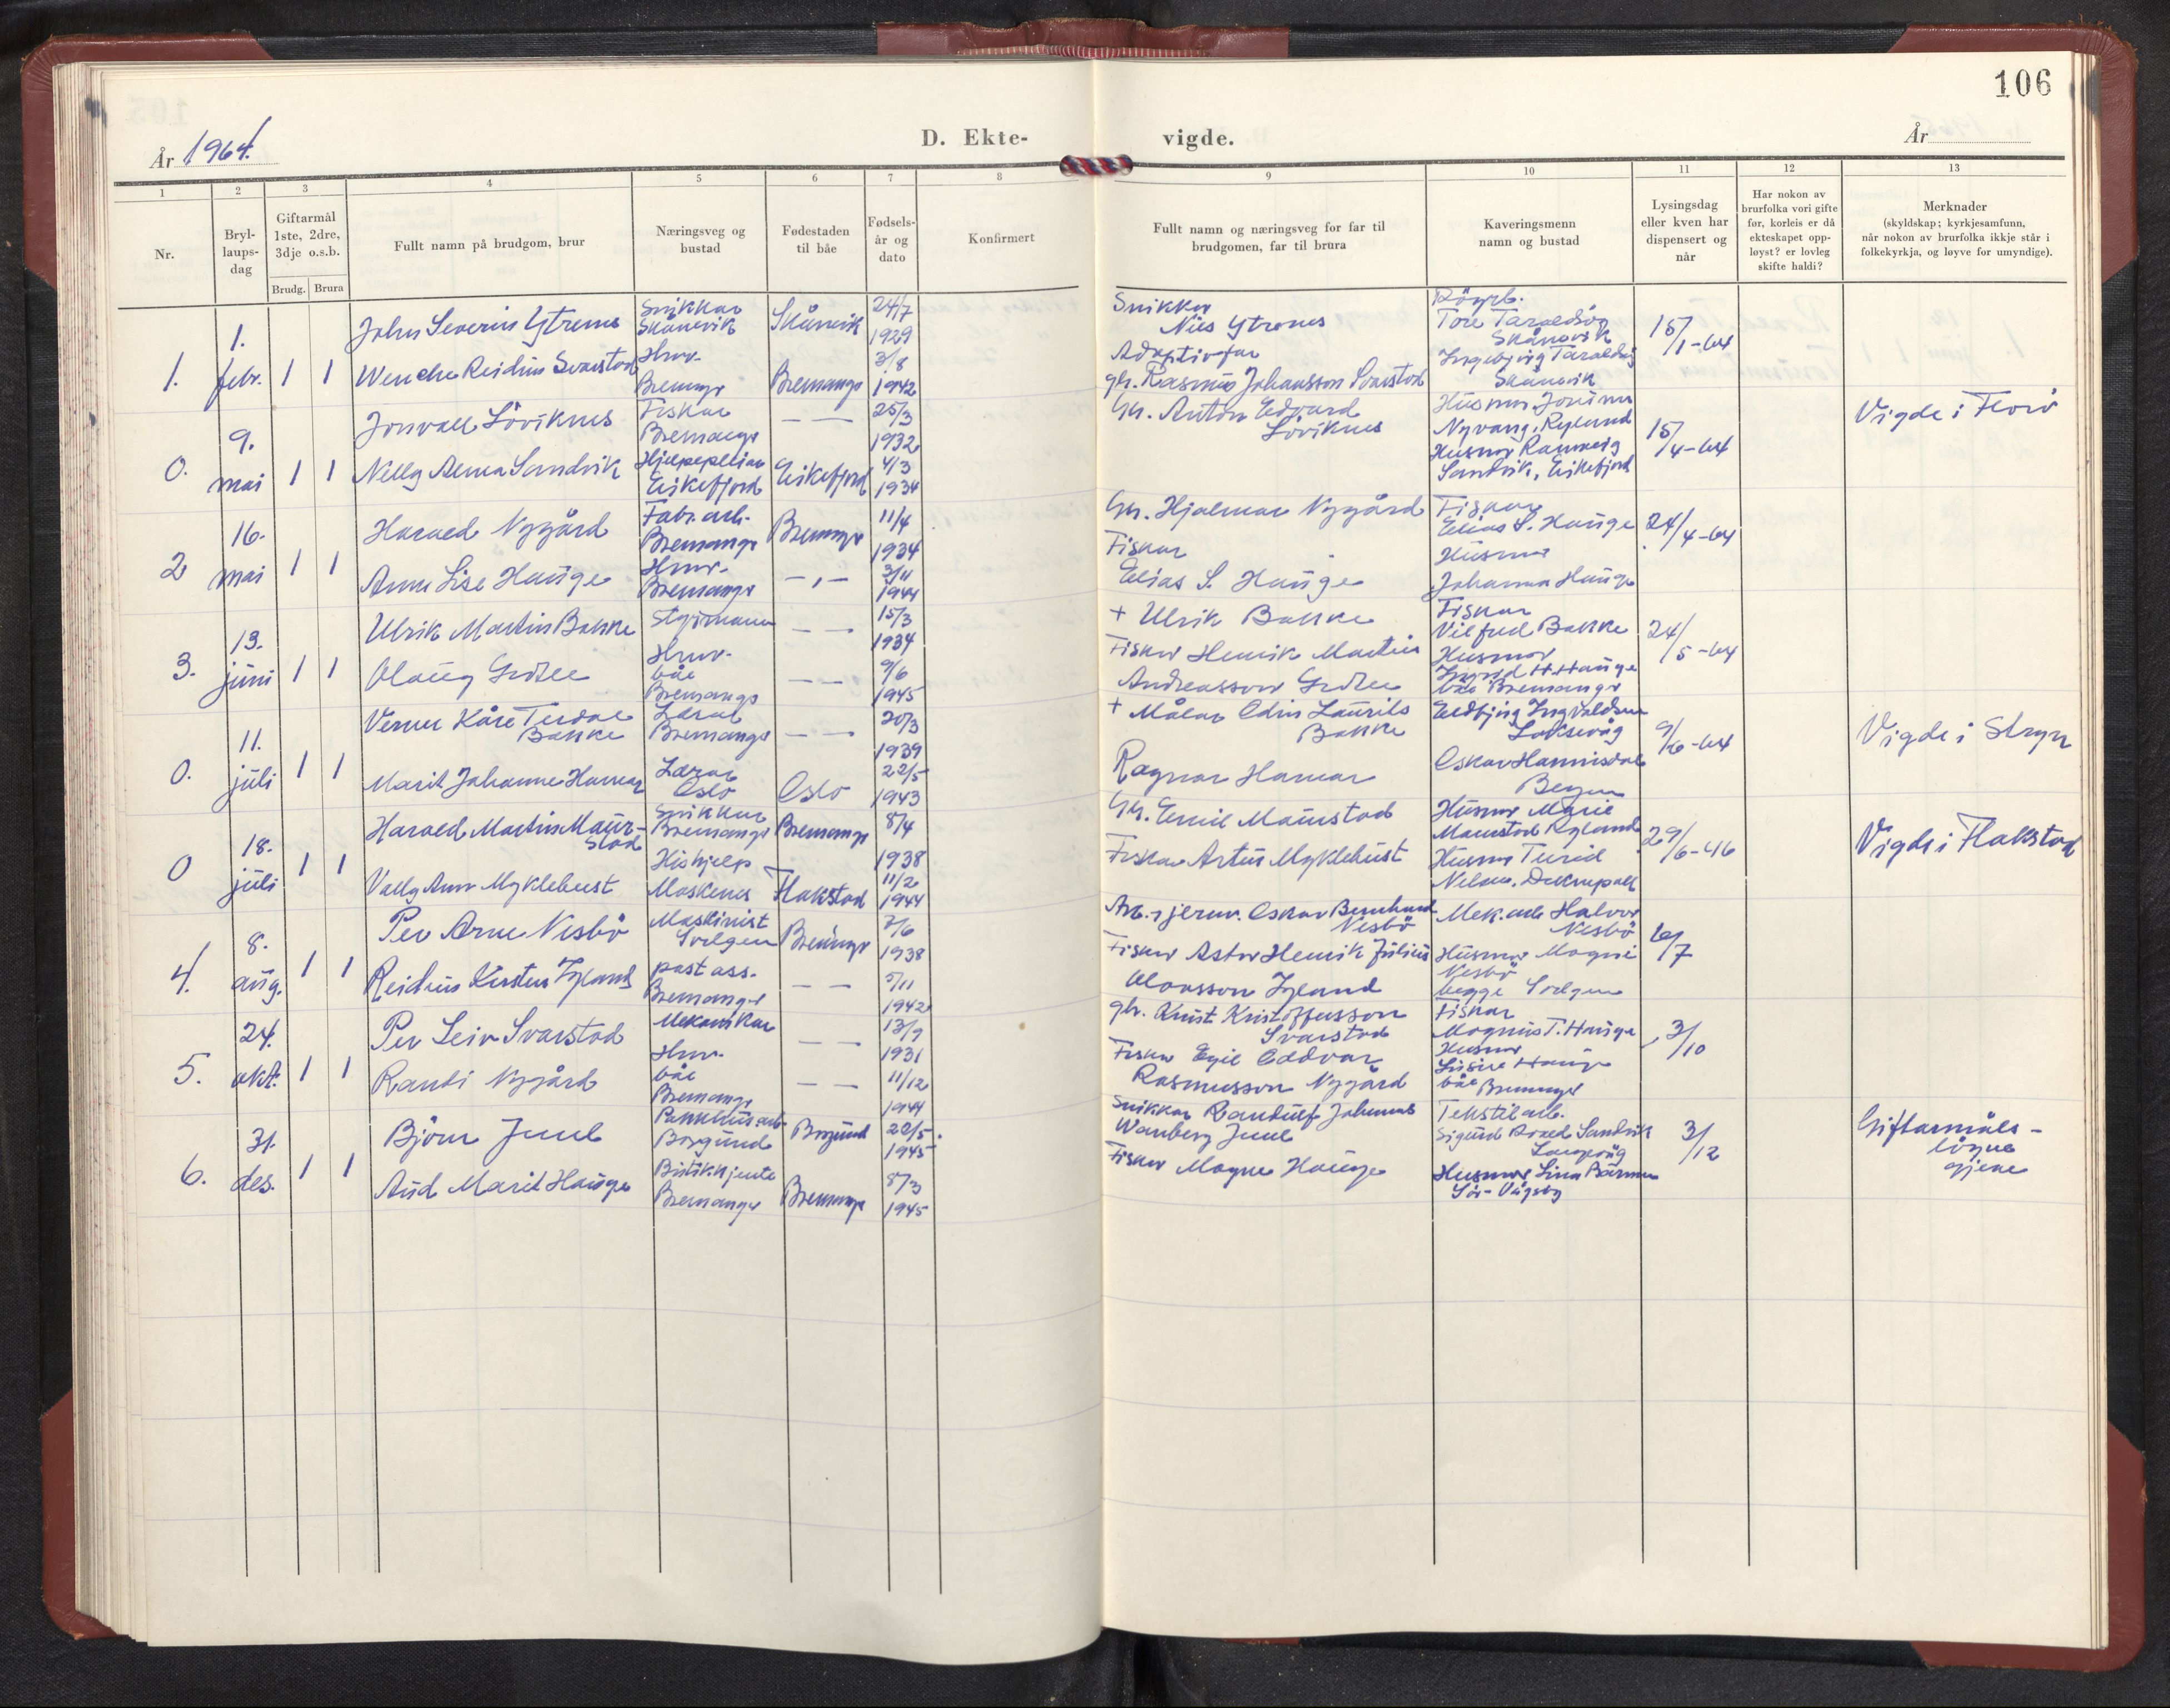 106
År 1964.
D. Ekte-
vigde.
År
1 2 3 4 5 6 7 8
9 10 11 12 13
Nr.
Bryl-
laups-
dag
Giftarmål
1ste, 2dre,
3dje o.s.b.
Brudg. Brura
Fullt namn på brudgom, brur
Næringsveg og
bustad
Fødestaden
til båe
Fødsels-
år og
dato
Konfirmert
Fullt namn og næringsveg for far til
brudgomen, far til brura
Kaveringsmenn
namn og bustad
Lysingsdag
eller kven har
dispensert og
når
Har nokon av
brurfolka vori gifte
før, korleis er då
ekteskapet opp-
løyst? er lovleg
skifte haldi?
Merknader
(skyldskap; kyrkjesamfunn,
når nokon av brurfolka ikkje står i
folkekyrkja, og løyve for umyndige).
1. 1. febr. 1 1
John Severin Ytrenes
Snikkar
Skånevik
Skånevik
24/7
1929
Wenche Reidun Svarstad
Hmv.
Bremanger
Bremanger
3/8
1942
Snikkar
Nils Ytrenes
Adoptivfar
gbr. Rasmus Johansson Svarstad
Tore Taraldsøy
Skånevik
Ingebjørg Taraldsøy
Skånevik
15/1-64
0. 9. mai 1 1
Jonvall Löviknes
Fiskar
Bremanger
— —
25/3
1932
Nelly Alma Sandvik
Eikefjord
Eikefjord
4/3
1934
Gbr. Anton Edvard
Löviknes
Husmor
Nyvang, Rylund
Husmor Rannveig
Sandvik, Eikefjord
15/4-64
Vigde i Florö
2 16. mai 1 1
Harald Nygård
Fabr. arb.
Bremanger
Bremanger
11/4
1934
Anne Lise Hauge
Hmv.
Bremanger
—,—
3/11
1944
Gbr. Hjalmar Nygård
Fiskar
Elias S. Hauge
Fiskar
Elias S. Hauge
Husmor
Johanna Hauge
24/4-64
3. 13. juni 1 1
Ulrik Martin Bakke
Styrmann
— —
15/3
1934
Olaug Grotle
Hmv.
båe
Bremanger
— —
9/6
1945
+ Ulrik Bakke
Fiskar Henrik Martin
Andreasson Grotle
Fiskar
Vilfred Bakke
Husmor
Ingrid H. Hauge
båe Bremanger
24/5-64
0. 11. juli 1 1
Verner Kåre Terdal
Bakke
Lærar
Bremanger
— —
20/3
1939
Marit Johanne Hamar
Lærar
Oslo
Oslo
22/5
1943
+ Målar Edin Laurits
Bakke
Ragnar Hamar
Eldbjørg Ingvaldsen
Laksevåg
Oskar Hannisdal
Bergen
9/6-64
Vigde i Stryn
0 18. juli 1 1
Harald Martin Maur-
stad
Snikkar
Bremanger
Bremanger
8/4
1938
Vally Ann Myklebust
Hushjelp
Moskenes
Flakstad
11/2
1944
Gbr. Emil Maurstad
Fiskar Artur Myklebust
Husmor Marie
Maurstad Rylund
Husmor Turid
29/6-46
Vigde i Flakstad
4. 8. aug. 1 1
Per Arne Nesbö
Maskinist
Svelgen
Bremanger
7/6
1938
Reidun Kirsten Igland
post ass.
Bremanger
— —
5/11
1942
Arb. i jernv. Oskar Bernhard
Nesbö
Fiskar Astor Henrik Julius
Olavsson Igland
Mek. arb. Halvor
Nesbö
Husmor Magni
Nesbö
begge Svelgen
6/7
5. 24. okt. 1 1
Per Leiv Svarstad
Mekanikar
— —
13/9
1931
Randi Nygård
Hmv.
båe
Bremanger
— —
11/12
1944
gbr. Knut Kristoffersson
Svarstad
Fiskar Egil Oddvar
Rasmusson Nygård
Fiskar
Magnus T. Hauge
Husmor
båe Bremanger
3/10
6. 31. des. 1 1
Björn Juul
Pakkhusarb.
Borgund
Borgund
22/5
1945
Aud Marit Hauge
Butikkjente
Bremanger
Bremanger
8/3
1945
Snikkar Randulf Johannes
Wanberg Juul
Fiskar Magne Hauge
Tekstilarb.
Sigurd Roald Sandvik
Langevåg
Husmor Lina Barmen
Sör-Vågsöy
3/12
Giftarmåls-
löyve